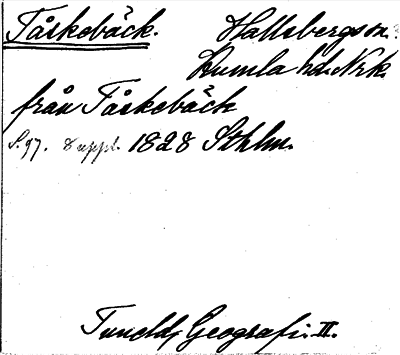 Tåskebäck. Hallsbergs sn.
Kumla hd. Nrk.
från Tåskebäck
S. 97. 8 uppl. 1828 Sthlm.
Tunelds Geografi. II.